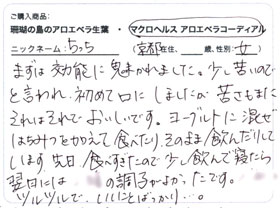 ご購入商品:
珊瑚の島のアロエベラ生葉 ・ マクロヘルス アロエベラコーディアル
ニックネーム:ちっち (京都在住、 歳、性別:女)
まずは効能に驚かされました。少し苦いので
と言われ、初めて口にしましたが苦さもまた
それはそれでおいしいです。ヨーグルトに混ぜ
はちみつをかえて食べたり、そのまま飲んだりして
います。先日食べすぎたので少し飲んで寝たら
翌日には の調子がよかったです。
ツルツルで、いいことばっかり…。